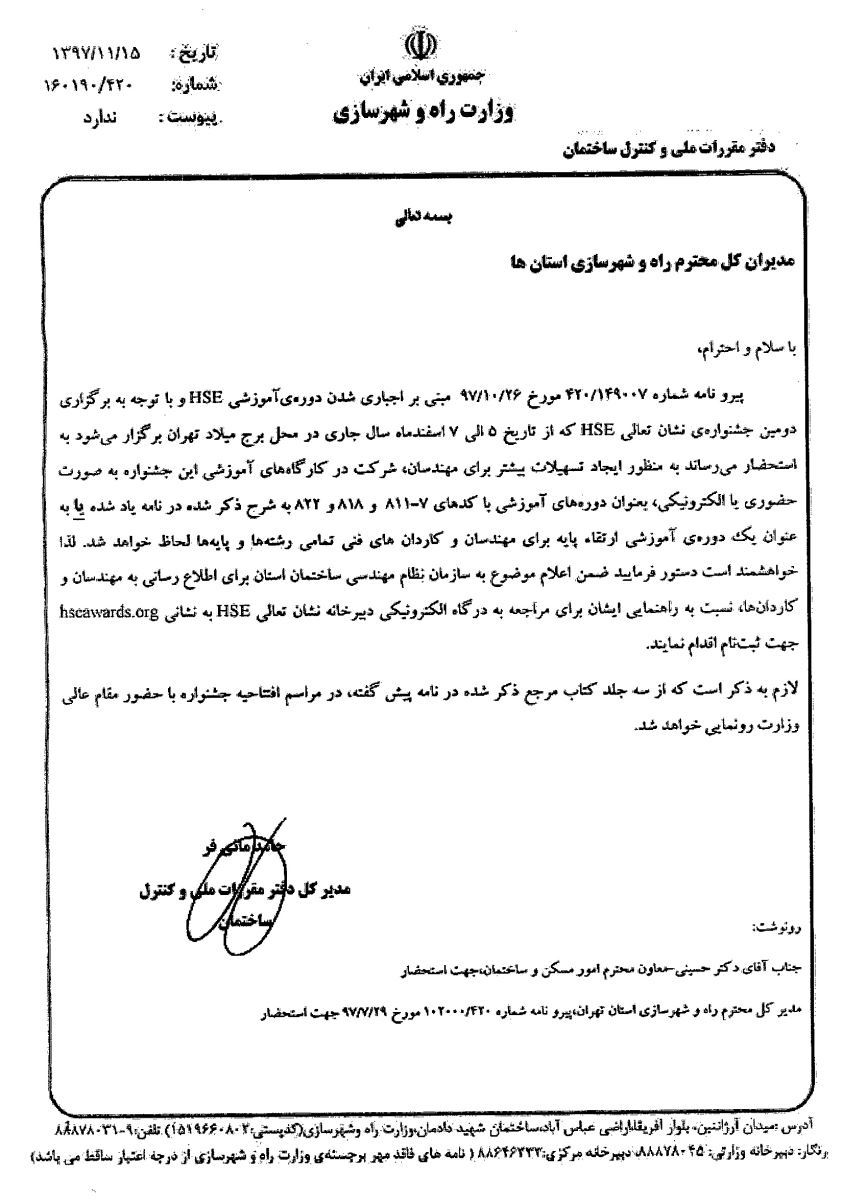 تاریخ: ۱۳۹۷/۱۱/۱۵
شماره: ۱۶۰۱۹۰/۴۲۰
پیوست: ندارد
جمهوری اسلامی ایران
وزارت راه و شهرسازی
دفتر مقررات ملی و کنترل ساختمان
بسمه تعالی
مدیران کل محترم راه و شهرسازی استان ها
با سلام و احترام،
پیرو نامه شماره ۴۲۰/۱۴۹۰۰۷ مورخ ۹۷/۱۰/۲۶ مبنی بر اجباری شدن دوره‌ی‌آموزشی HSE و با توجه به برگزاری
دومین جشنواره‌ی نشان تعالی HSE که از تاریخ ۵ الی ۷ اسفندماه سال جاری در محل برج میلاد تهران برگزار می‌شود به
استحضار می‌رساند به منظور ایجاد تسهیلات بیشتر برای مهندسان، شرکت در کارگاه‌های آموزشی این جشنواره به صورت
حضوری یا الکترونیکی، بعنوان دوره‌های آموزشی با کدهای ۷-۸۱۱ و ۸۱۸ و ۸۲۲ به شرح ذکر شده در نامه یاد شده یا به
عنوان یک دوره‌ی آموزشی ارتقاء پایه برای مهندسان و کاردان های فنی تمامی رشته‌ها و پایه‌ها لحاظ خواهد شد. لذا
خواهشمند است دستور فرمایید ضمن اعلام موضوع به سازمان نظام مهندسی ساختمان استان برای اطلاع رسانی به مهندسان و
کاردان‌ها، نسبت به راهنمایی ایشان برای مراجعه به درگاه الکترونیکی دبیرخانه نشان تعالی HSE به نشانی hseawards.org
جهت ثبت‌نام اقدام نمایند.
لازم به ذکر است که از سه جلد کتاب مرجع ذکر شده در نامه پیش گفته، در مراسم افتتاحیه جشنواره با حضور مقام عالی
وزارت رونمایی خواهد شد.
حامد مانی فر
مدیر کل دفتر مقررات ملی و کنترل
ساختمان
رونوشت:
جناب آقای دکتر حسینی-معاون محترم امور مسکن و ساختمان،جهت استحضار
مدیر کل محترم راه و شهرسازی استان تهران،پیرو نامه شماره ۱۰۲۰۰۰/۴۲۰ مورخ ۹۷/۷/۲۹ جهت استحضار
آدرس :میدان آرژانتین، بلوار افریقا،اراضی عباس آباد،ساختمان شهید دادمان،وزارت راه وشهرسازی(کدپستی:۱۵۱۹۶۶۰۸۰۲) تلفن:۹-۸۸۸۷۸۰۳۱
رنگار: دبیرخانه وزارتی: ۸۸۸۷۸۰۴۵، دبیرخانه مرکزی:۸۸۶۴۶۳۳۳ ( نامه های فاقد مهر برجسته‌ی وزارت راه و شهرسازی از درجه اعتبار ساقط می باشد)